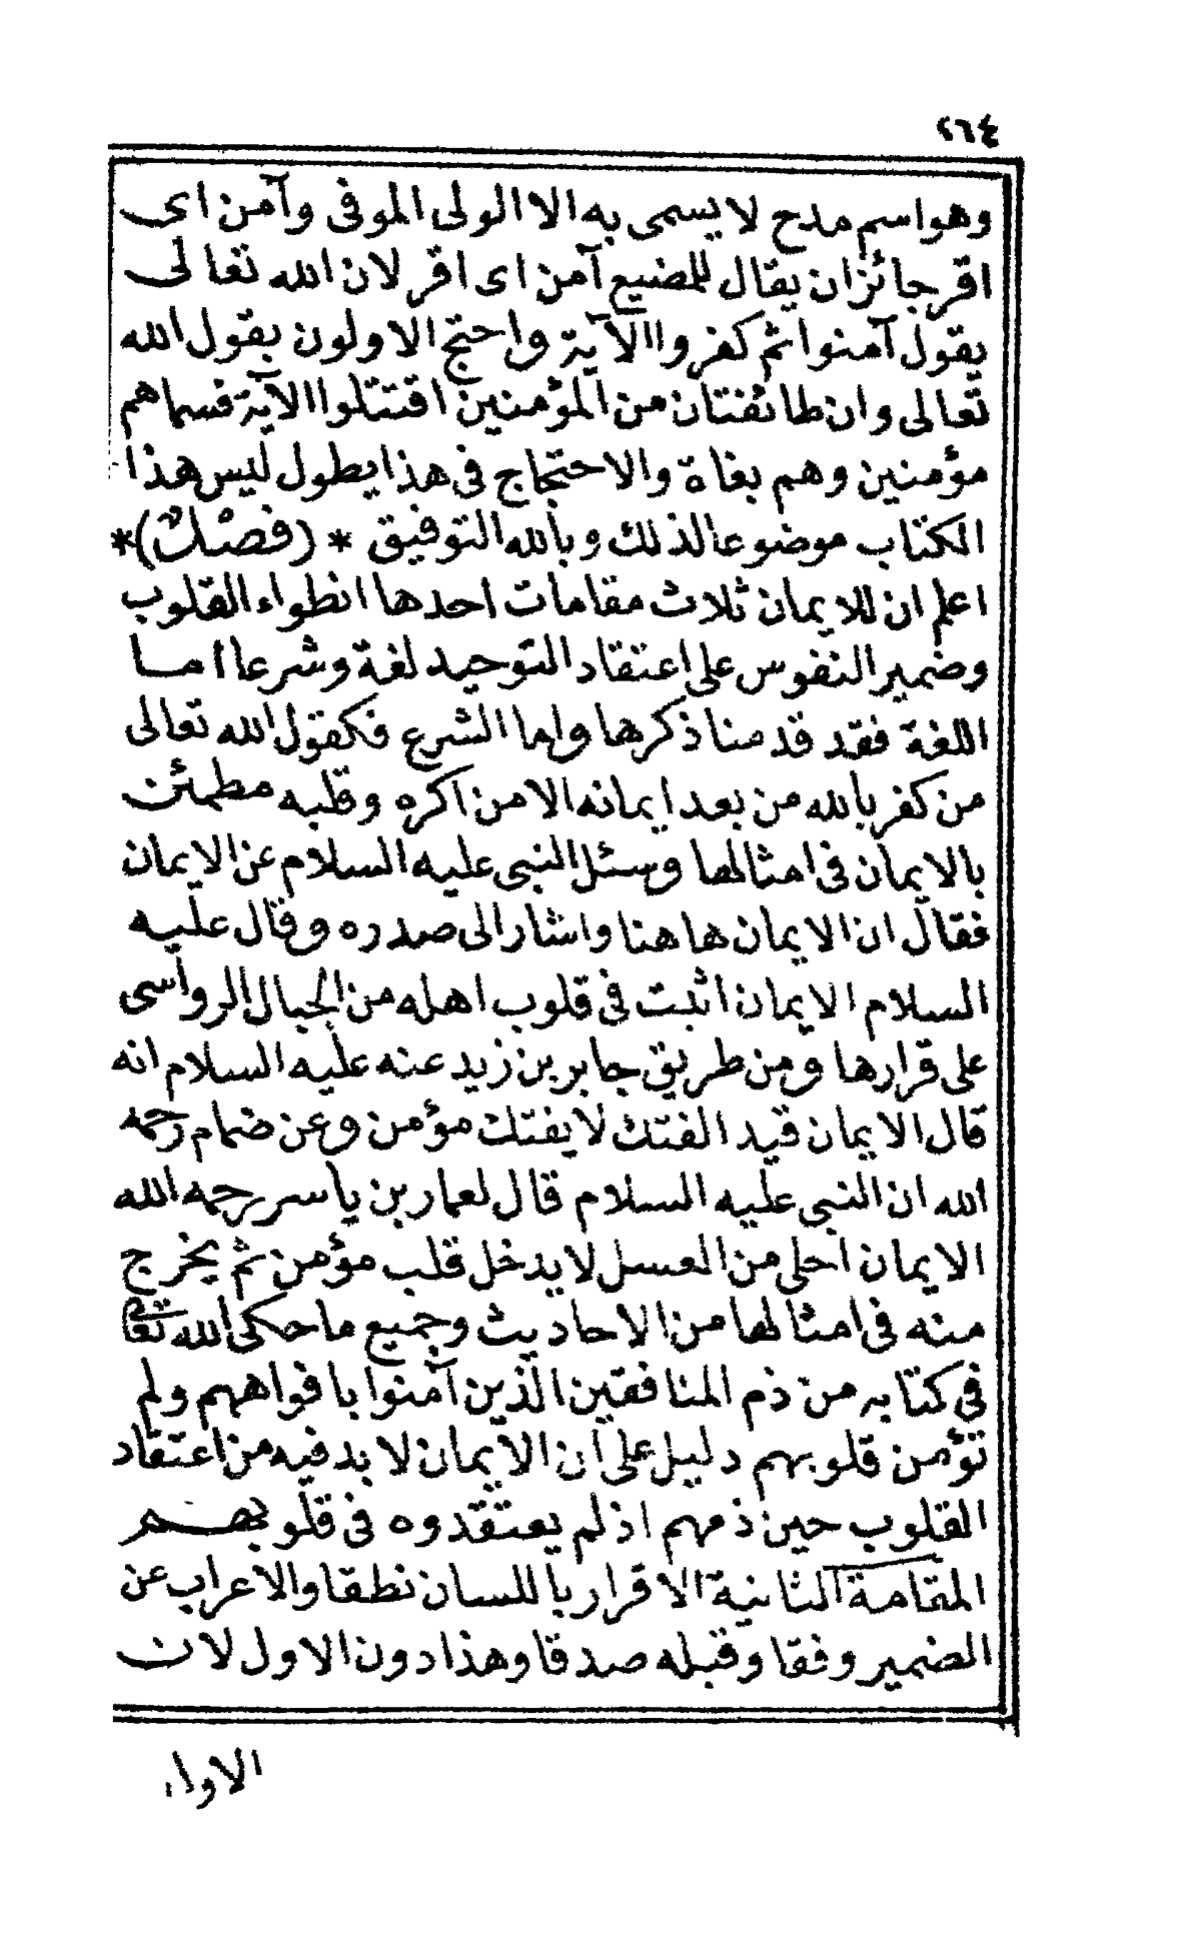 ٢٦٤
وهو اسم مدح لا يسمى به الا الولى الموفى وآمن اى
اقر جائز ان يقال للمضيع آمن اى اقر لان الله تعالى
يقول آمنوا ثم كفروا الآية واحتج الاولون بقول الله
تعالى وان طائفتان من المؤمنين اقتتلوا الآية فسماهم
مؤمنين وهم بغاة والاحتجاج فى هذا يطول ليس هذا
الكتاب موضوعا لذلك وبالله التوفيق * (فصل) *
اعلم ان للايمان ثلاث مقامات احدها انطواء القلوب
وضمير النفوس على اعتقاد التوحيد لغة وشرعا اما
اللغة فقد قدمنا ذكرها واما الشرع فكقول الله تعالى
من كفر بالله من بعد ايمانه الا من اكره وقلبه مطمئن
بالايمان فى امثالها وسئل النبى عليه السلام عن الايمان
فقال ان الايمان هاهنا واشار الى صدره وقال عليه
السلام الايمان اثبت فى قلوب اهله من الجبال الرواسى
على قرارها ومن طريق جابر بن زيد عنه عليه السلام انه
قال الايمان قيد الفتك لا يفتك مؤمن وعن ضمام رحمه
الله ان النبى عليه السلام قال لعمار بن ياسر رحمه الله
الايمان احلى من العسل لا يدخل قلب مؤمن ثم يخرج
منه فى امثالها من الاحاديث وجميع ما حكى الله تعا
فى كتابه من ذم المنافقين الذين آمنوا بافواههم ولم
تؤمن قلوبهم دليل على ان الايمان لا بد فيه من اعتقاد
القلوب حين ذمهم اذ لم يعتقدوه فى قلوبهم
المقامة الثانية الاقرار باللسان نطقا والاعراب عن
الضمير وفقا وقبله صدقا وهذا دون الاول لان
الاول